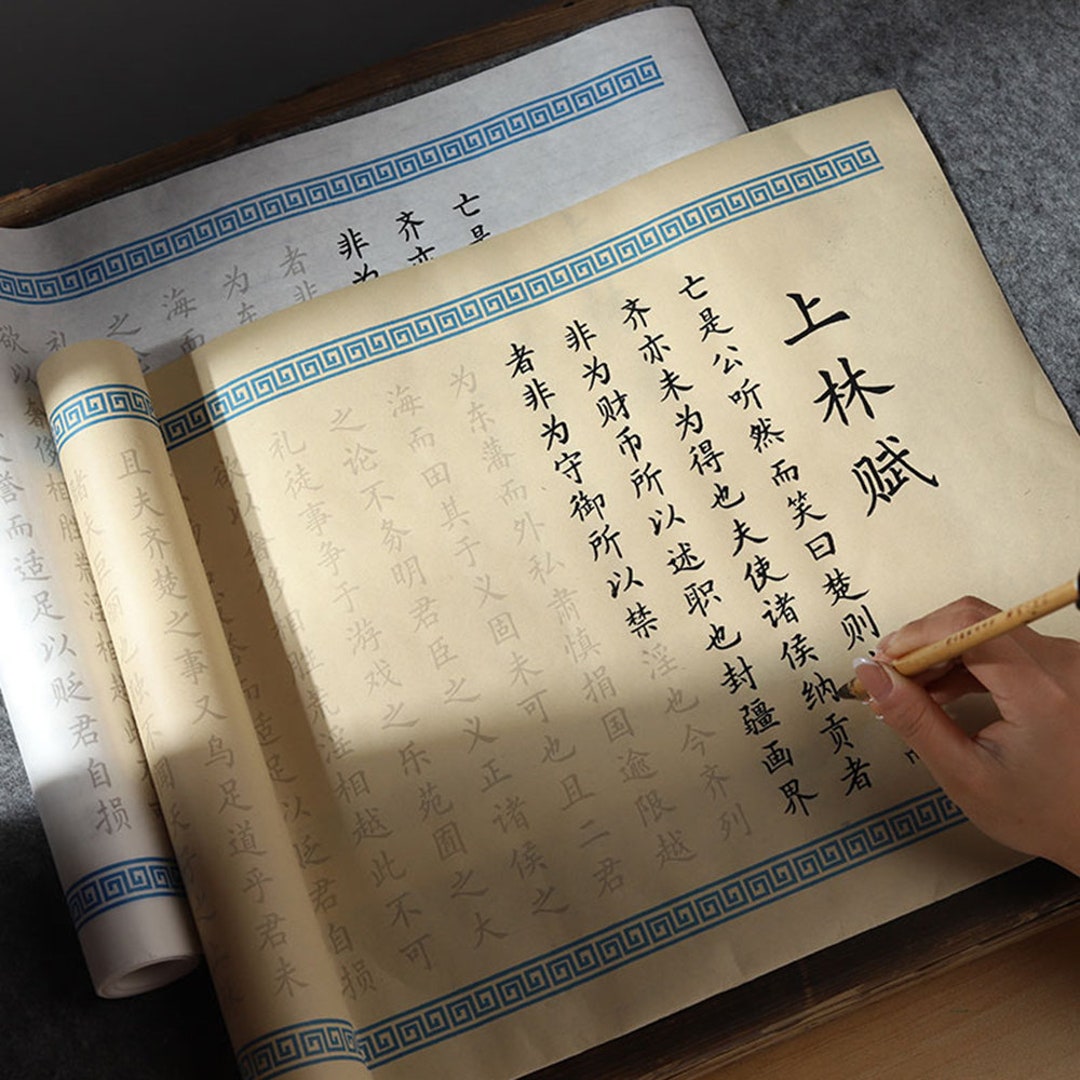 上林赋
亡是公听然而笑曰楚则
齐亦未为得也夫使诸侯纳贡者
非为财币所以述职也封疆画界
者非为守御所以禁淫也今齐列
为东藩而外私肃慎捐国逾限越
海而田其于义固未可也且二君
之论不务明君臣之义正诸侯之
礼徒事争于游戏之乐苑囿之大
欲以奢侈相胜荒淫相越此不可
誉而适足以贬君自损
且夫齐楚之事又乌足道乎君未
亡是
齐亦
非为
者非
为东
海而
之
礼
欲以奢侈相
誉而适足以贬君自损